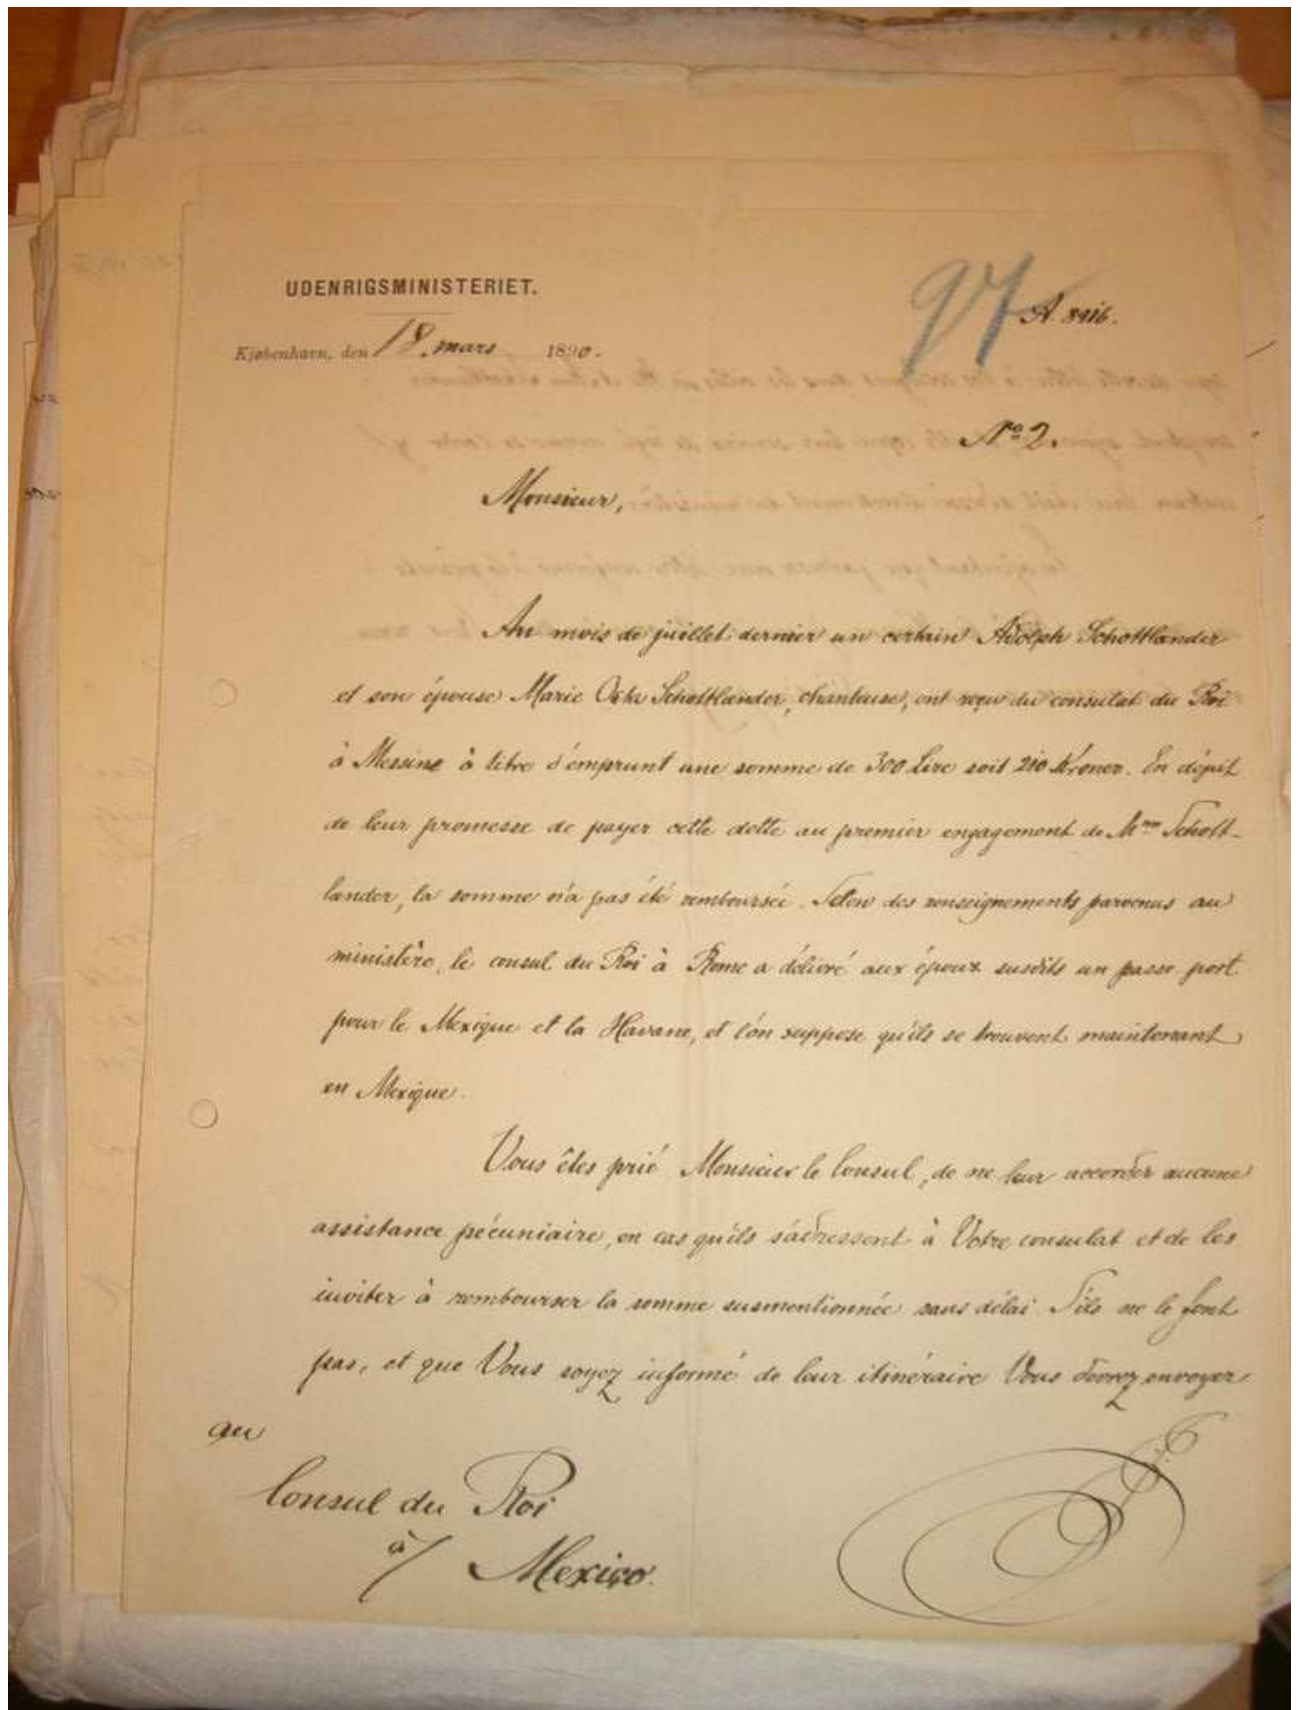 UDENRIGSMINISTERIET.
97
A. 8916.
Kjøbenhavn, den 18 mars 1890.
No 2.
Monsieur,
Au mois de juillet dernier un certain Adolph Schottlænder
et son épouse Marie Schottlænder, chanteuse, ont reçu du consulat du Roi
à Messine à titre d'emprunt une somme de 300 Lire soit 210 Kroner. En dépit
de leur promesse de payer cette dette au premier engagement de Mme Schott-
lænder, la somme n'a pas été remboursée. Selon des renseignements parvenus au
ministère, le consul du Roi à Rome a délivré aux époux susdits un passe port
pour le Mexique et la Havane, et l'on suppose qu'ils se trouvent maintenant
en Mexique.
Vous êtes prié Monsieur le Consul, de ne leur accorder aucune
assistance pécuniaire, en cas qu'ils s'adressent à Votre consulat et de les
inviter à rembourser la somme susmentionnée sans délai. S'ils ne le font
pas, et que Vous soyez informé de leur itinéraire Vous devrez envoyer
au
Consul du Roi
à/ Mexico.